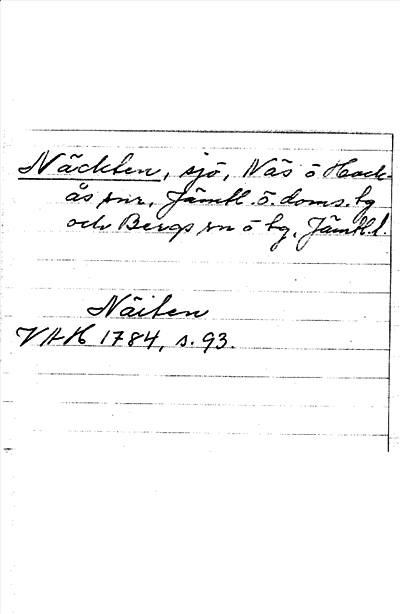 Näckten, sjö, Näs o Hack-
ås snr, Jämtl. ö. doms. tg
och Bergs sn o tg, Jämtl. l.
Näiten
VAH 1784, s. 93.